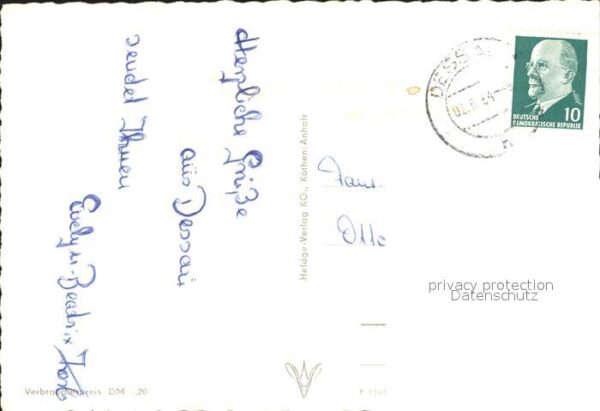 Herzliche Grüße
aus Dessau
sendet Ihnen
Evelyn-Beatrix
Heldge-Verlag KG., Köthen/Anhalt
Verbraucherpreis DM -,20
DESSAU
DEUTSCHE
DEMOKRATISCHE REPUBLIK
10
Otto
privacy protection
Datenschutz